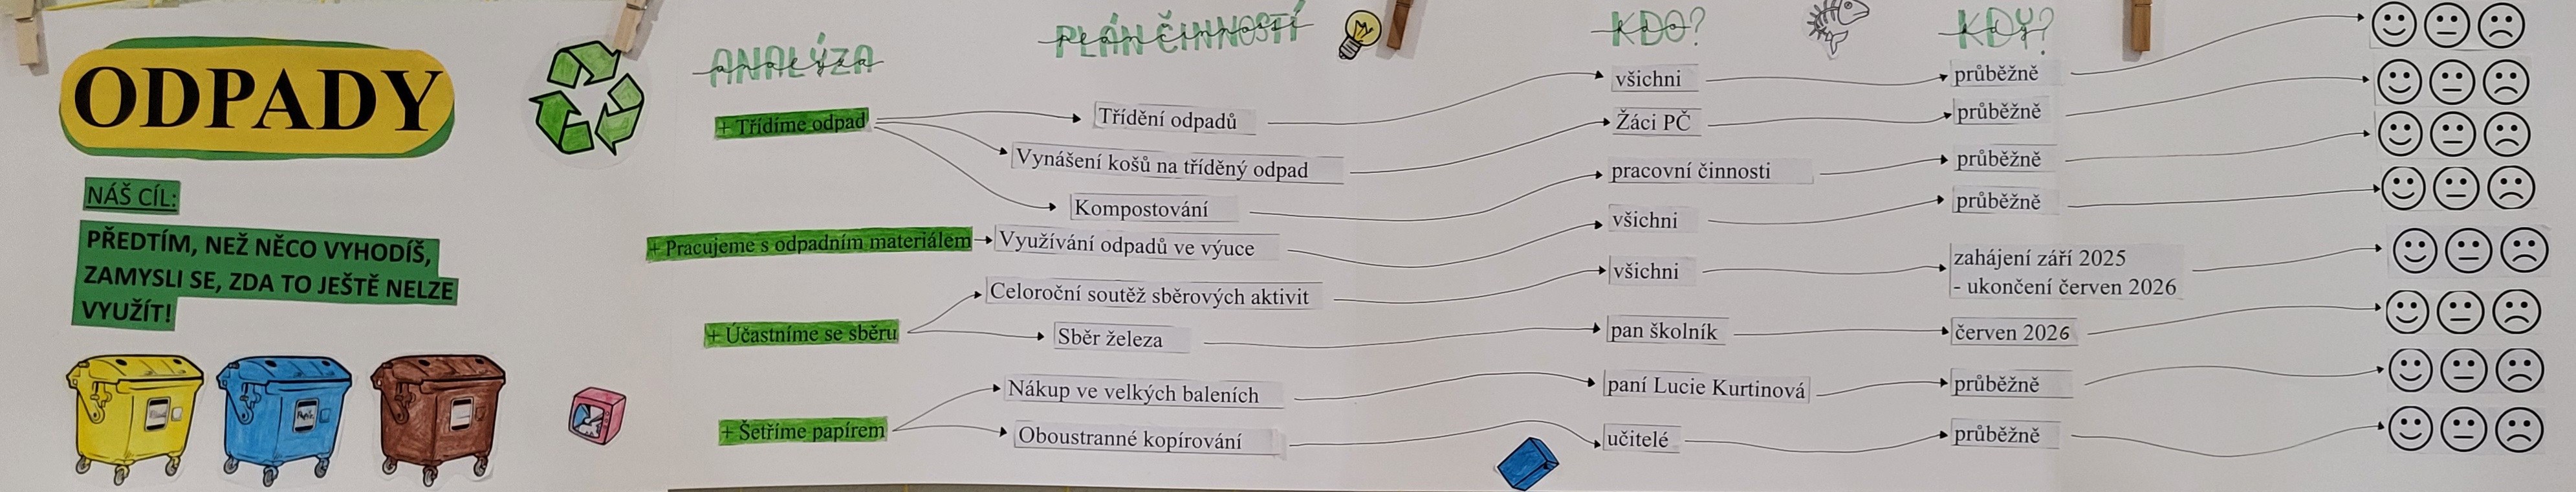 ODPADY
NÁŠ CÍL:
PŘEDTÍM, NEŽ NĚCO VYHODÍŠ,
ZAMYSLI SE, ZDA TO JEŠTĚ NELZE
VYUŽÍT!
ANALÝZA
analýza
PLÁN ČINNOSTÍ
plán činností
KDO?
kdo?
KDY?
kdy?
+ Třídíme odpad
Třídění odpadů
všichni
průběžně
Vynášení košů na tříděný odpad
Žáci PČ
průběžně
Kompostování
pracovní činnosti
průběžně
+ Pracujeme s odpadním materiálem
Využívání odpadů ve výuce
všichni
průběžně
+ Účastníme se sběru
Celoroční soutěž sběrových aktivit
všichni
zahájení září 2025
- ukončení červen 2026
Sběr železa
pan školník
červen 2026
+ Šetříme papírem
Nákup ve velkých baleních
paní Lucie Kurtinová
průběžně
Oboustranné kopírování
učitelé
průběžně